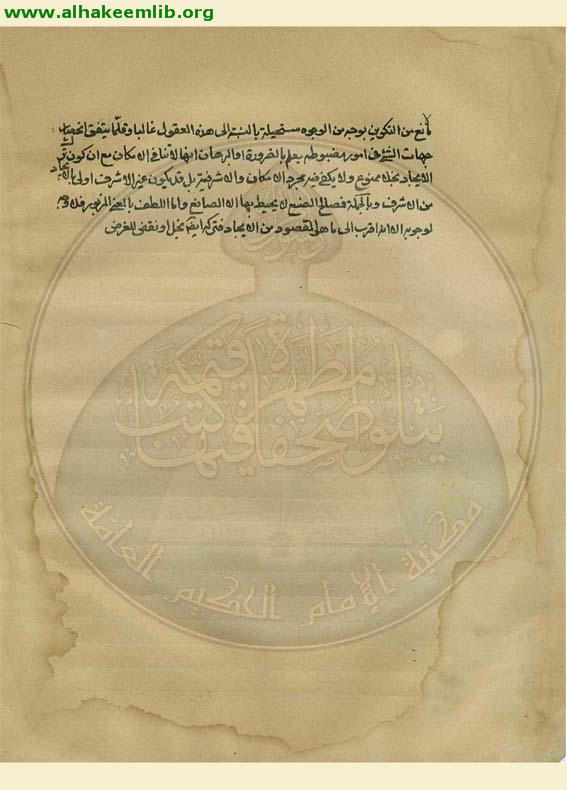 www.alhakeemlib.org
مانع من التكوين بوجه من الوجوه مستحيلة بالنسبة الى هذه العقول غالبا وقلما يتفق انحصار
جهات الشئ في امور مضبوطه يعلم بالضرورة او البرهان انها لا تنافي الامكان مع ان كون ترك
الايجاد بخلا ممنوع ولا يكفي فيه مجرد الامكان والاشرفية بل قد يكون غير الاشرف اولى بالايجاد
من الاشرف وبالجملة فمصالح الصنع لا يحيط بها الا الصانع واما اللطف بالمعنى المزبور فلا وجه
لوجوبه الا انه اقرب الى ما هو المقصود من الايجاد فتركه ايضا بخل او نقض للغرض
يتلو صحفا مطهرة فيها كتب قيمة
مكتبة الإمام الحكيم العامة